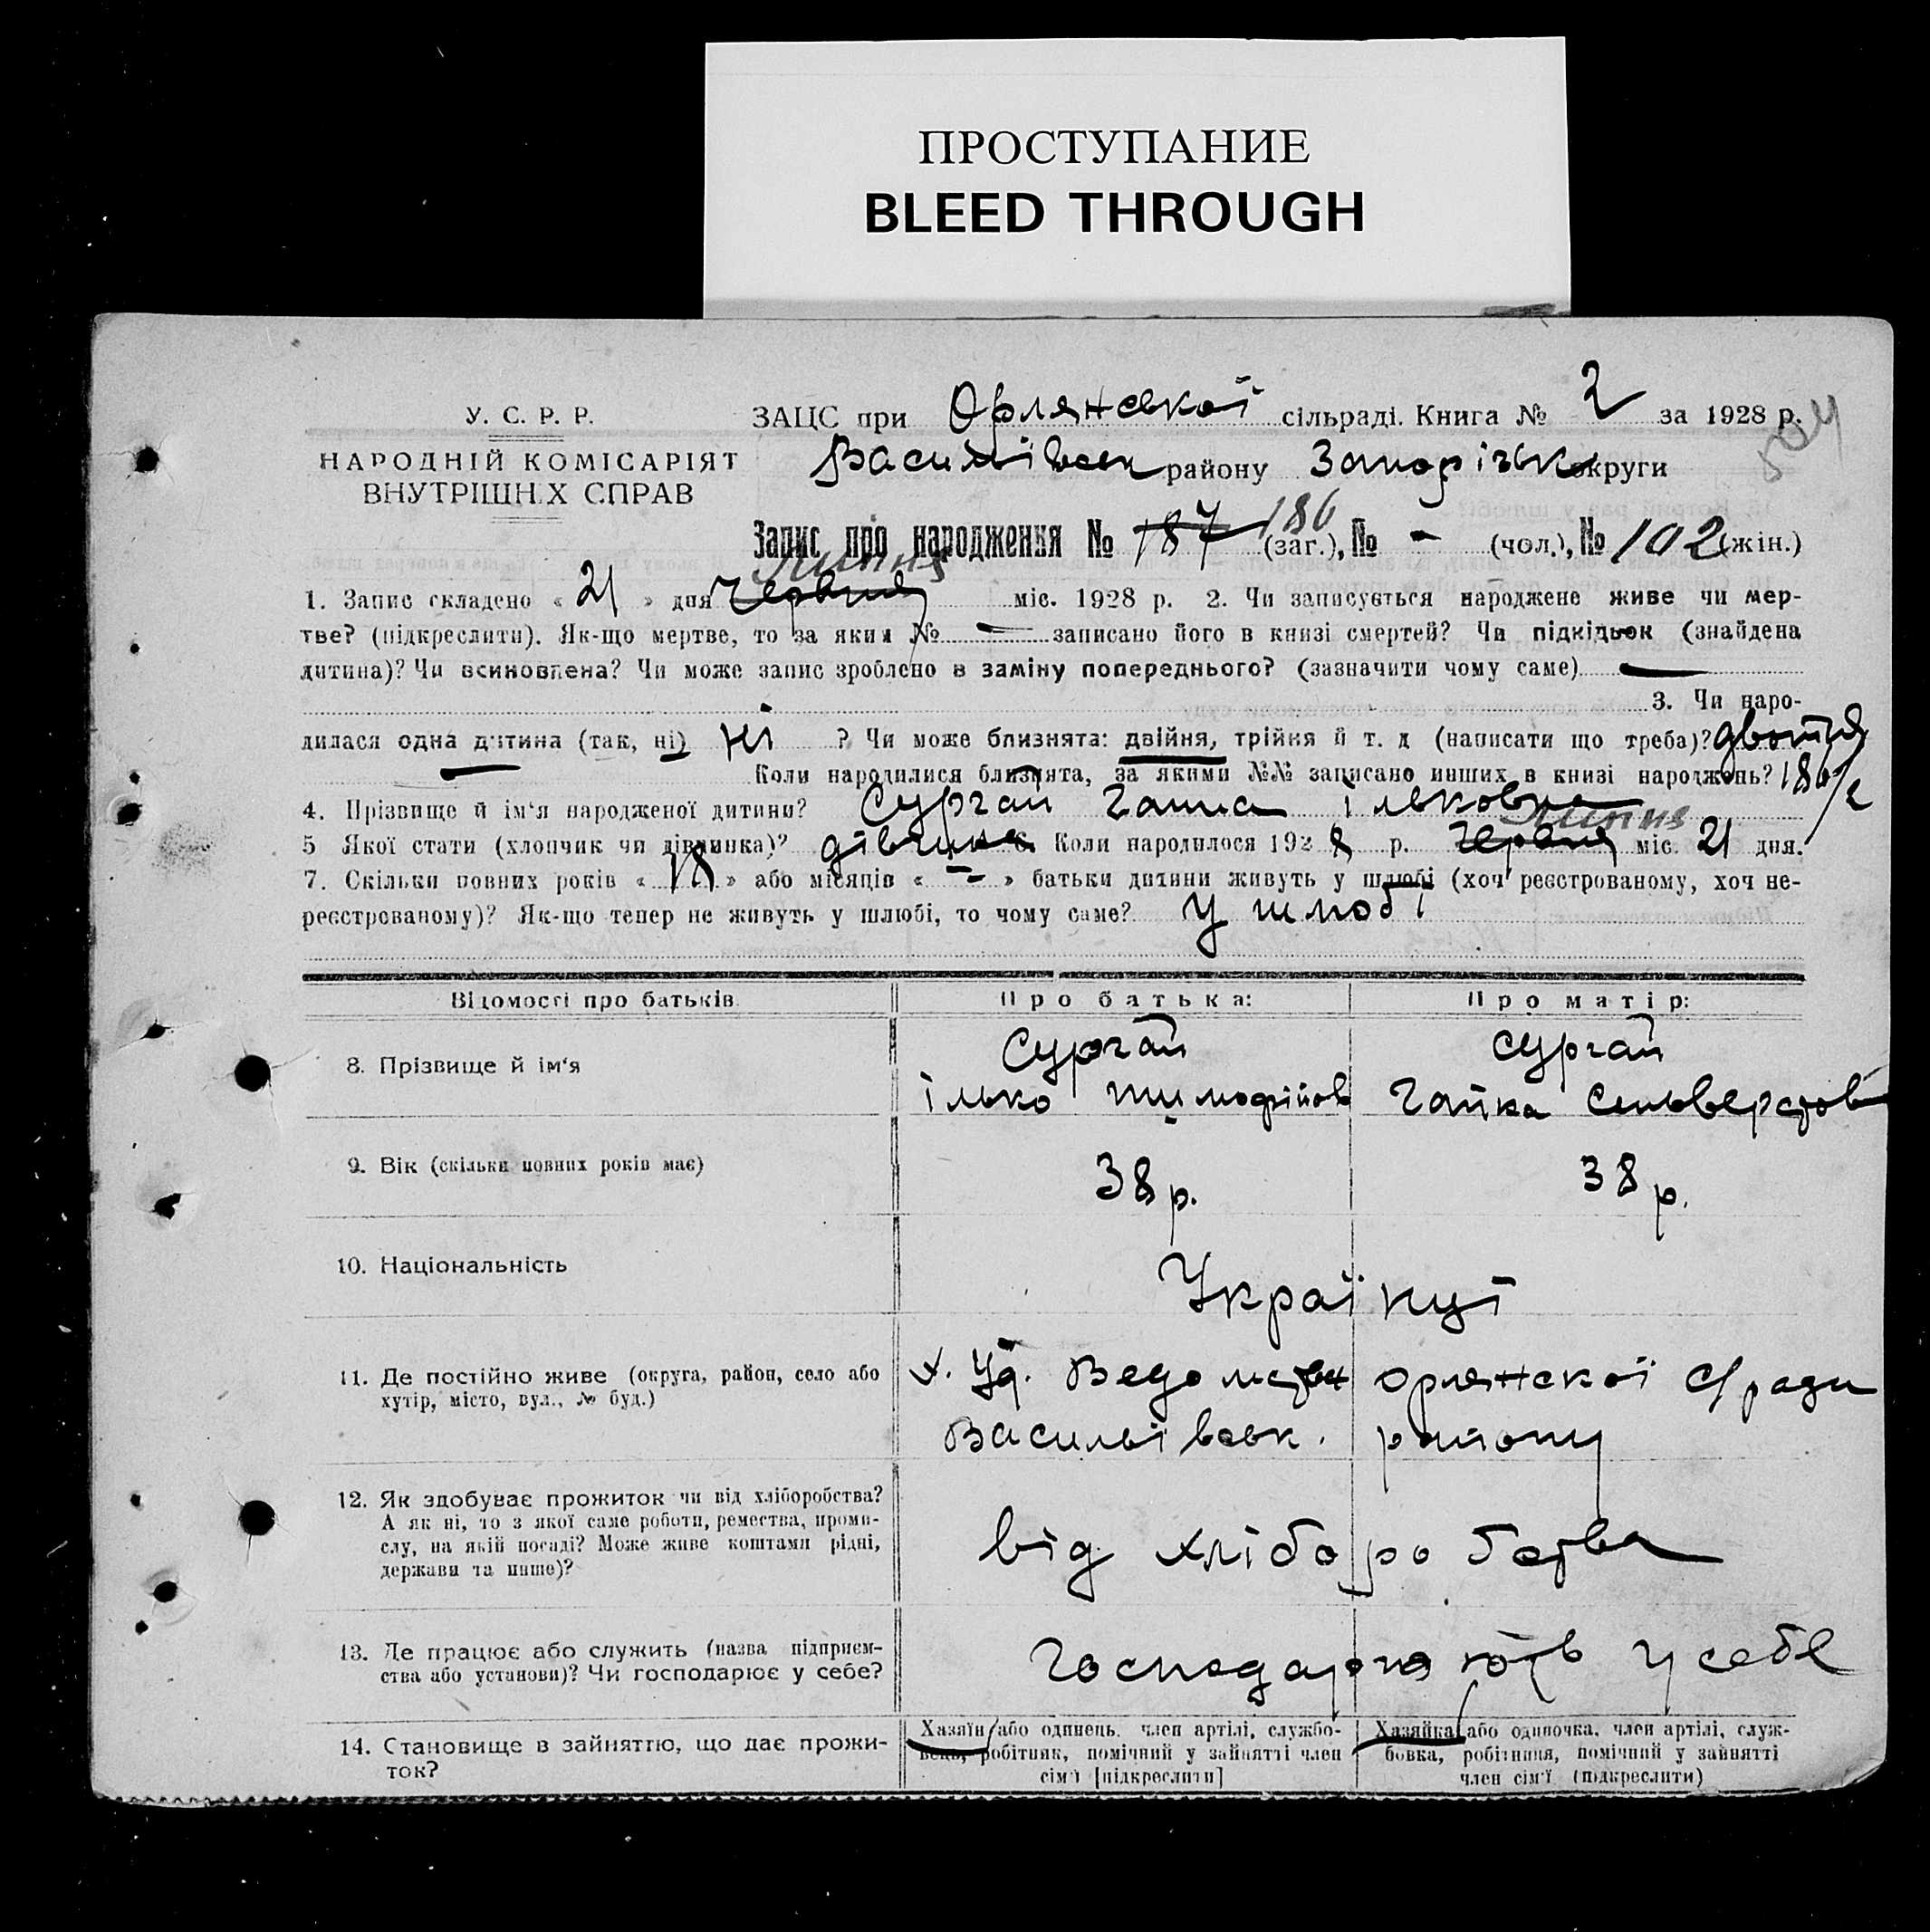 ПРОСТУПАНИЕ
BLEED THROUGH
У. С. Р. Р.
НАРОДНІЙ КОМІСАРІЯТ
ВНУТРІШНІХ СПРАВ
ЗАЦС при Орлянської сільраді. Книга № 2 за 1928 р.
Василівськ району Запорізьк округи
Запис про народження № 187 186 (заг.), № - (чол.), № 102 (жін.)
Липня
1. Запис складено « 21 » дня Червня міс. 1928 р. 2. Чи записується народжене живе чи мер-
тве? (підкреслити). Як-що мертве, то за яким № — записано його в книзі смертей? Чи підкідьок (знайдена
дитина)? Чи всиновлена? Чи може запис зроблено в заміну попереднього? (зазначити чому саме) —
3. Чи наро-
дилася одна дитина (так, ні) ні ? Чи може близнята: двійня, трійня й т. д (написати що треба)? двійня
— Коли народилися близнята, за якими №№ записано инших в книзі народжень? 186/2
4. Прізвище й ім'я народженої дитини? Сургай Ганна Ільковна
Липня
5 Якої стати (хлопчик чи дівчинка)? дівчинка Коли народилося 1928 р. Червня міс. 21 дня.
7. Скільки повних років « 18 » або місяців « -- » батьки дитини живуть у шлюбі (хоч реєстрованому, хоч не-
реєстрованому)? Як-що тепер не живуть у шлюбі, то чому саме? У шлюбі
Відомості про батьків
Про батька:
Про матір:
8. Прізвище й ім'я
Сургай
Ілько Тимофійов
Сургай
Гапка Сильверстов
9. Вік (скільки повних років має)
38 р.
38 р.
10. Національність
Українці
11. Де постійно живе (округа, район, село або
хутір, місто, вул., № буд.)
х. Уд. Ведомствн Орлянскої С/ради
Васильівськ. району
12. Як здобуває прожиток чи від хліборобства?
А як ні, то з якої саме роботи, ремества, проми-
слу, на якій посаді? Може живе коштами рідні,
держави та инше)?
від хліборобства
13. Де працює або служить (назва підприєм-
ства або установи)? Чи господарює у себе?
Господарюють у себе
14. Становище в зайняттю, що дає прожи-
ток?
Хазяїн або одинець, член артілі, службо-
вець, робітник, помічний у зайнятті член
сім'ї [підкреслити]
Хазяйка або одиночка, член артілі, служ-
бовка, робітниця, помічний у зайнятті
член сім'ї (підкреслити)